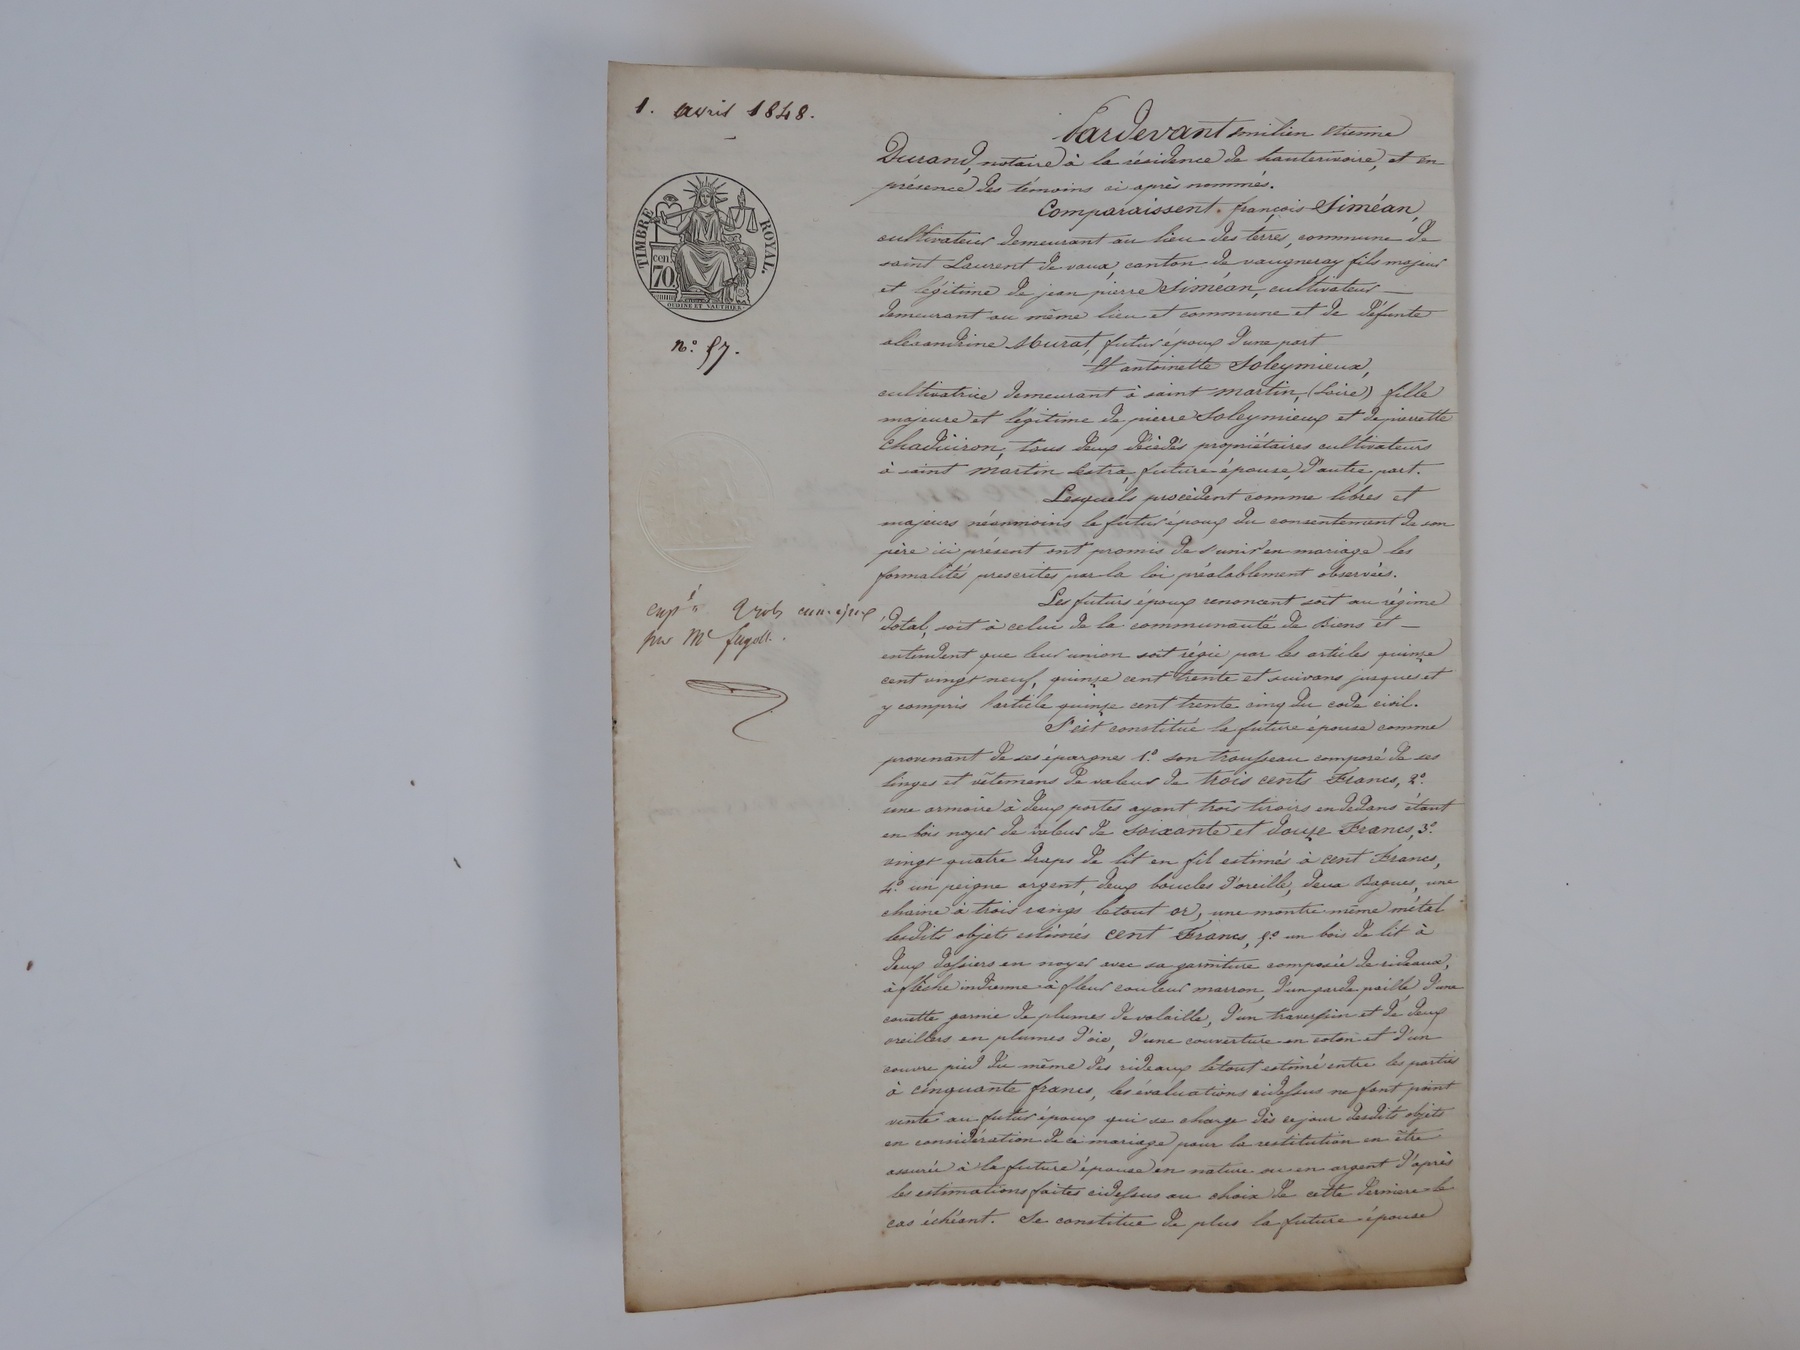 1. avril 1848.
TIMBRE ROYAL.
cen
70
n.o 57.
Pardevant Emilien Etienne
Durand, notaire à la résidence de hauterivoire, et en
présence des témoins ci après nommés.
Comparaissent. françois Siméan,
cultivateur demeurant au lieu des terres, commune de
saint Laurent de vaux, canton de vaugneray fils majeur
et légitime de jean pierre Siméan, cultivateur —
demeurant au même lieu et commune et de défunte
alexandrine Murat, futur époux d'une part
Et antoinette Soleymieux,
cultivatrice demeurant à saint martin, (Loire) fille
majeure et légitime de pierre Soleymieux et de pierrette
tous deux décédés propriétaires cultivateurs
à saint martin lestra, future épouse, d'autre part.
Lesquels procèdent comme libres et
majeurs néanmoins le futur époux du consentement de son
père ici présent ont promis de s'unir en mariage les
formalités prescrites par la loi préalablement observées.
Les futurs époux renoncent soit au régime
dotal, soit à celui de la communauté de Biens et —
entendent que leur union soit régie par les articles quinze
cent vingt neuf, quinze cent trente et suivans jusques et
y compris l'article quinze cent trente cinq du code civil.
S'est constitué la future épouse comme
provenant de ses épargnes 1.o son trousseau composé de ses
linges et vêtemens de valeur de trois cents Francs, 2.o
une armoire à deux portes ayant trois tiroirs en dedans étant
en bois noyer de valeur de soixante et douze Francs, 3.o
vingt quatre draps de lit en fil estimés à cent Francs,
4.o un peigne argent, deux boucles d'oreille, deux Bagues, une
chaine à trois rangs le tout or, une montre même métal
lesdits objets estimés cent Francs, 5.o un bois de lit à
deux dossiers en noyer avec sa garniture composée de rideaux,
à flêche indienne à fleur couleur marron, d'un garde paille, d'une
couette garnie de plumes de volaille, d'un traversin et de deux
oreillers en plumes d'oie, d'une couverture en coton et d'un
couvre pied du même des rideaux le tout estimé entre les parties
à cinquante francs, les évaluations cidessus ne font point
vente au futur époux qui se charge dès ce jour desdits objets
en considération de ce mariage pour la restitution en être
assurée à la future épouse en nature ou en argent d'après
les estimations faites cidessus au choix de cette derniere le
cas échéant. Se constitue de plus la future épouse
par Me